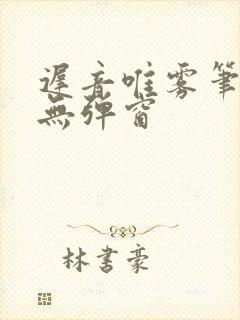 遲音唯雾筆
無彈窗
林書豪